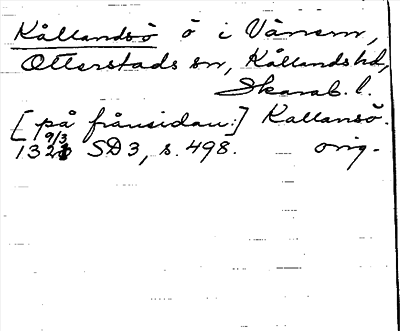 Kållandsö ö i Vänern,
Otterstads sn, Kållands hd,
Skarab. l.
[på frånsidan:] Kallansö.
9/3
132 SD 3, s. 498. orig.